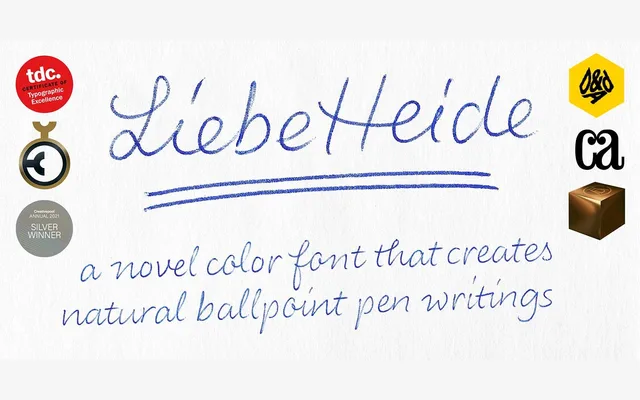 tdc.
CERTIFICATE OF
Typographic
Excellence
LiebeHeide
D&AD
ca
ANNUAL 2021
SILVER
WINNER
a novel color font that creates
natural ballpoint pen writings